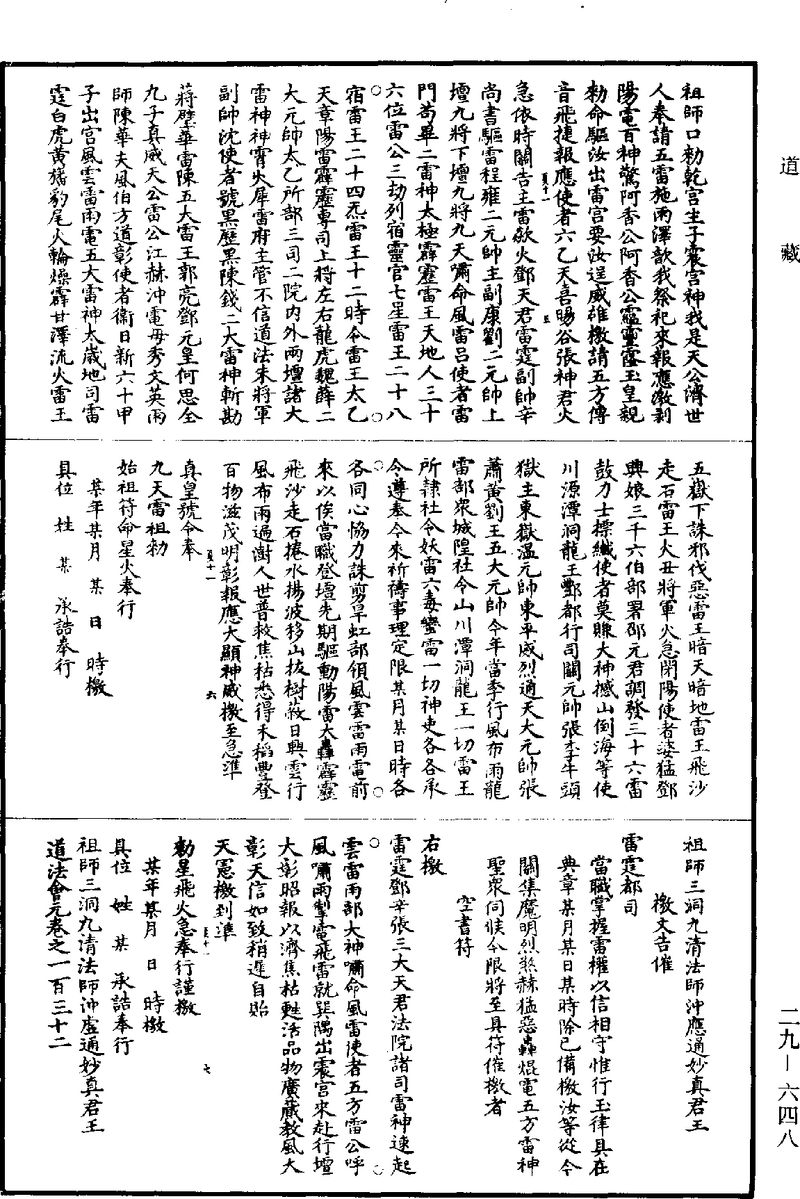 道藏
祖師口勑乾宮主子震宮神我是天公濟世
人奉請五雷施雨澤歆我祭祀來報應激剥
陽電百神驚阿香公阿香公靐靈霳玉皇親
勑命驅汝出雷宮要汝逞威雄檄請五方傳
音飛捷報應使者六乙天喜暘谷張神君火
急依時關告主雷欻火鄧天君雷霆副帥辛
尚書驅雷程雍二元帥主副康劉二元帥上
壇九將下壇九將九天嘯命風雷呂使者雷
門苟畢二雷神太極霹靂雷王天地人三十
六位雷公三劫列宿靈官七星雷王二十八
宿雷王二十四炁雷王十二時令雷王太乙
天章陽雷霹靂專司上將左右龍虎魏薛二
大元帥太乙所部三司二院內外兩壇諸大
雷神神霄火犀雷府主管不信道法朱將軍
副帥沈使者號黑歷黑陳錢二大雷神斬勘
蔣壁華雷陳五大雷王郭亮鄧元皇何思全
九子真威天公雷公江赫沖電母秀文英雨
師陳華夫風伯方道彰使者衞日新六十甲
子出宮風雲雷雨電五大雷神太歲地司雷
霆白虎黃旛豹尾火輪燥霹甘澤流火雷王
五嶽下誅邪伐惡雷王暗天暗地雷王飛沙
走石雷王大丑將軍火急閉陽使者婆猛鄧
興娘三千六伯部署邵元君調發三十六雷
鼓力士摽纖使者莫賺大神撼山倒海等使
川源潭洞龍王酆都行司關元帥張李牛頭
獄主東嶽溫元帥東平威烈通天大元帥張
蕭黃劉王五大元帥今年當季行風布雨龍
雷部眾城隍社令山川潭洞龍王一切雷王
所隸社令妖雷六毒蠻雷一切神吏各各承
令遵奉今來祈禱事理定限某月某日時各
各同心恊力誅剪旱虹部領風雲雷雨電前
來以俟當職登壇先期驅動陽雷大轟霹靂
飛沙走石捲水揚波移山拔樹蔽日興雲行
風布雨過澍人世普救焦枯悉得禾稻豐登
百物滋茂明彰報應大顯神威檄至急準
真皇號令奉
九天雷祖勑
始祖符命星火奉行
某年某月 某 日 時檄
具位 姓 某 承誥奉行
祖師三洞九清法師沖應通妙真君王
檄文吉催
雷霆都司
當職掌握雷權以信相守惟行玉律具在
典章某月某日某時除已備檄汝等從今
關集魔明烈煞赫猛惡轟焜電五方雷神
聖眾伺候今限將至具符催檄者
空書符
右檄
雷霆鄧辛張三大天君法院諸司雷神速起
雲雷雨部大神嘯命風雷使者五方雷公呼
風嘯雨掣電飛雷就巽隅出震宮來赴行壇
大彰昭報以濟焦枯甦活品物廣蕆教風大
彰天信如致稍遲自貽
天憲檄到準
勑星飛火急奉行謹檄
某年某月 日 時檄
具位 姓 某 承誥奉行
祖師三洞九清法師沖虛通妙真君王
道法會元卷之一百三十二
二九－六四八